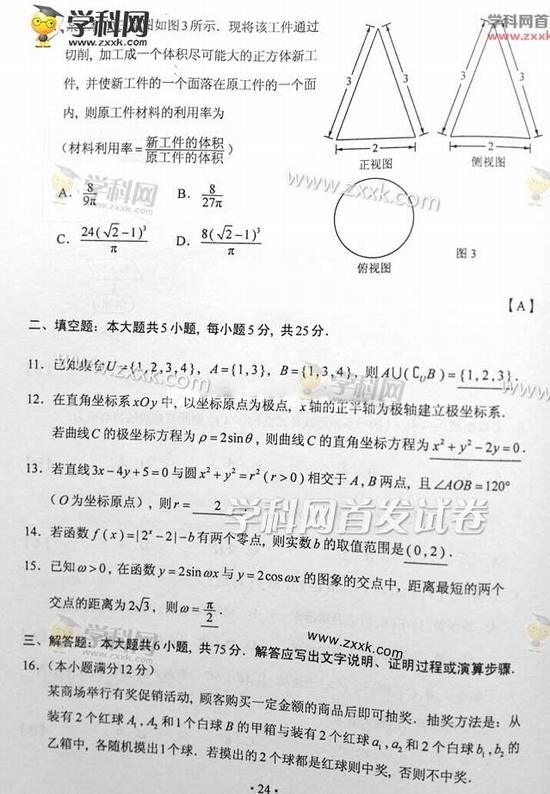 图如图3所示．现将该工件通过
切削，加工成一个体积尽可能大的正方体新工
件，并使新工件的一个面落在原工件的一个面
内，则原工件材料的利用率为
（材料利用率=新工件的体积/原工件的体积）
A. 8/9π B. 8/27π
C. 24(√2-1)³/π D. 8(√2-1)³/π
3 3 2 正视图
3 3 2 侧视图
俯视图
图3
【A】
二、填空题：本大题共5小题，每小题5分，共25分．
11. 已知集合U={1,2,3,4}，A={1,3}，B={1,3,4}，则A∪(∁UB)={1,2,3}．
12. 在直角坐标系xOy中，以坐标原点为极点，x轴的正半轴为极轴建立极坐标系．
若曲线C的极坐标方程为ρ=2sinθ，则曲线C的直角坐标方程为x²+y²-2y=0．
13. 若直线3x-4y+5=0与圆x²+y²=r²(r>0)相交于A,B两点，且∠AOB=120°
（O为坐标原点），则r= 2 ．
14. 若函数f(x)=|2ˣ-2|-b有两个零点，则实数b的取值范围是(0,2)．
15. 已知ω>0，在函数y=2sinωx与y=2cosωx的图象的交点中，距离最短的两个
交点的距离为2√3，则ω=π/2．
三、解答题：本大题共6小题，共75分．解答应写出文字说明、证明过程或演算步骤．
16.（本小题满分12分）
某商场举行有奖促销活动，顾客购买一定金额的商品后即可抽奖．抽奖方法是：从
装有2个红球A₁,A₂和1个白球B的甲箱与装有2个红球a₁,a₂和2个白球b₁,b₂的
乙箱中，各随机摸出1个球．若摸出的2个球都是红球则中奖，否则不中奖．
·24·
学科网
www.zxxk.com
学科网首发试卷